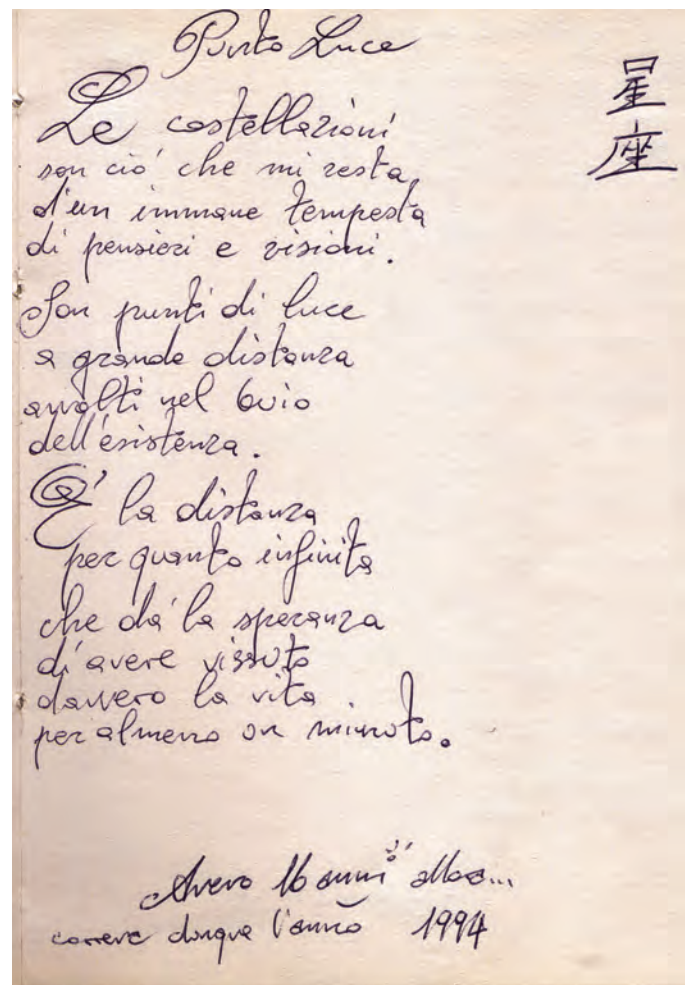 Punto Luce
星座
Le costellazioni
son ció che mi resta
d'un immane tempesta
di pensieri e visioni.
Son punti di luce
a grande distanza
avvolti nel buio
dell'esistenza.
E' la distanza
per quanto infinita
che dá la speranza
di avere vissuto
davvero la vita
per almeno un minuto.
Avevo 16 anni allora...
correva dunque l'anno 1994